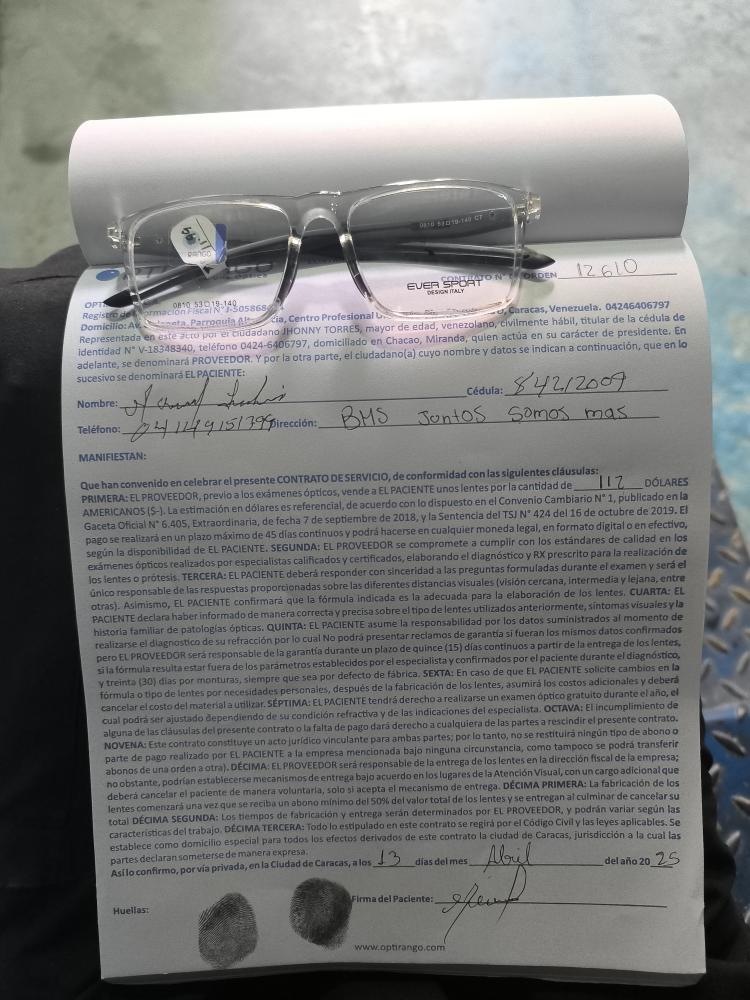 0810 53□19-140 CT
11.99
RANGO
0810 53□19-140
EVER SPORT
DESIGN ITALY
CONTRATO N° ORDEN 12610
OPT
Registro de Información Fiscal N° J-505868
Domicilio: Av. Parroquia Centro Profesional Caracas, Venezuela. 04246406797
Representada en este acto por el ciudadano JHONNY TORRES, mayor de edad, venezolano, civilmente hábil, titular de la cédula de
Identidad N° V-18348340, teléfono 0424-6406797, domiciliado en Chacao, Miranda, quien actúa en su carácter de presidente. En
adelante, se denominará PROVEEDOR. Y por la otra parte, el ciudadano(a) cuyo nombre y datos se indican a continuación, que en lo
sucesivo se denominará EL PACIENTE:
Nombre: Cédula:
Teléfono: Dirección: BMS Juntos Somos mas
MANIFIESTAN:
Que han convenido en celebrar el presente CONTRATO DE SERVICIO, de conformidad con las siguientes cláusulas:
PRIMERA: EL PROVEEDOR, previo a los exámenes ópticos, vende a EL PACIENTE unos lentes por la cantidad de 112 DÓLARES
AMERICANOS ($-). La estimación en dólares es referencial, de acuerdo con lo dispuesto en el Convenio Cambiario N° 1, publicado en la
Gaceta Oficial N° 6.405, Extraordinaria, de fecha 7 de septiembre de 2018, y la Sentencia del TSJ N° 424 del 16 de octubre de 2019. El
pago se realizará en un plazo máximo de 45 días continuos y podrá hacerse en cualquier moneda legal, en formato digital o en efectivo,
según la disponibilidad de EL PACIENTE. SEGUNDA: EL PROVEEDOR se compromete a cumplir con los estándares de calidad en los
exámenes ópticos realizados por especialistas calificados y certificados, elaborando el diagnóstico y RX prescrito para la realización de
los lentes o prótesis. TERCERA: EL PACIENTE deberá responder con sinceridad a las preguntas formuladas durante el examen y será el
único responsable de las respuestas proporcionadas sobre las diferentes distancias visuales (visión cercana, intermedia y lejana, entre
otras). Asimismo, EL PACIENTE confirmará que la fórmula indicada es la adecuada para la elaboración de los lentes. CUARTA: EL
PACIENTE declara haber informado de manera correcta y precisa sobre el tipo de lentes utilizados anteriormente, síntomas visuales y la
historia familiar de patologías ópticas. QUINTA: EL PACIENTE asume la responsabilidad por los datos suministrados al momento de
realizarse el diagnostico de su refracción por lo cual No podrá presentar reclamos de garantía si fueran los mismos datos confirmados
pero EL PROVEEDOR será responsable de la garantía durante un plazo de quince (15) días continuos a partir de la entrega de los lentes,
si la fórmula resulta estar fuera de los parámetros establecidos por el especialista y confirmados por el paciente durante el diagnóstico,
y treinta (30) días por monturas, siempre que sea por defecto de fábrica. SEXTA: En caso de que EL PACIENTE solicite cambios en la
fórmula o tipo de lentes por necesidades personales, después de la fabricación de los lentes, asumirá los costos adicionales y deberá
cancelar el costo del material a utilizar. SÉPTIMA: EL PACIENTE tendrá derecho a realizarse un examen óptico gratuito durante el año, el
cual podrá ser ajustado dependiendo de su condición refractiva y de las indicaciones del especialista. OCTAVA: El incumplimiento de
alguna de las cláusulas del presente contrato o la falta de pago dará derecho a cualquiera de las partes a rescindir el presente contrato.
NOVENA: Este contrato constituye un acto jurídico vinculante para ambas partes; por lo tanto, no se restituirá ningún tipo de abono o
parte de pago realizado por EL PACIENTE a la empresa mencionada bajo ninguna circunstancia, como tampoco se podrá transferir
abonos de una orden a otra). DÉCIMA: EL PROVEEDOR será responsable de la entrega de los lentes en la dirección fiscal de la empresa;
no obstante, podrían establecerse mecanismos de entrega bajo acuerdo en los lugares de la Atención Visual, con un cargo adicional que
deberá cancelar el paciente de manera voluntaria, solo si acepta el mecanismo de entrega. DÉCIMA PRIMERA: La fabricación de los
lentes comenzará una vez que se reciba un abono mínimo del 50% del valor total de los lentes y se entregan al culminar de cancelar su
total DÉCIMA SEGUNDA: Los tiempos de fabricación y entrega serán determinados por EL PROVEEDOR, y podrán variar según las
características del trabajo. DÉCIMA TERCERA: Todo lo estipulado en este contrato se regirá por el Código Civil y las leyes aplicables. Se
establece como domicilio especial para todos los efectos derivados de este contrato la ciudad de Caracas, jurisdicción a la cual las
partes declaran someterse de manera expresa.
Así lo confirmo, por vía privada, en la Ciudad de Caracas, a los 13 días del mes Abril del año 2025
Huellas: Firma del Paciente:
www.optirango.com